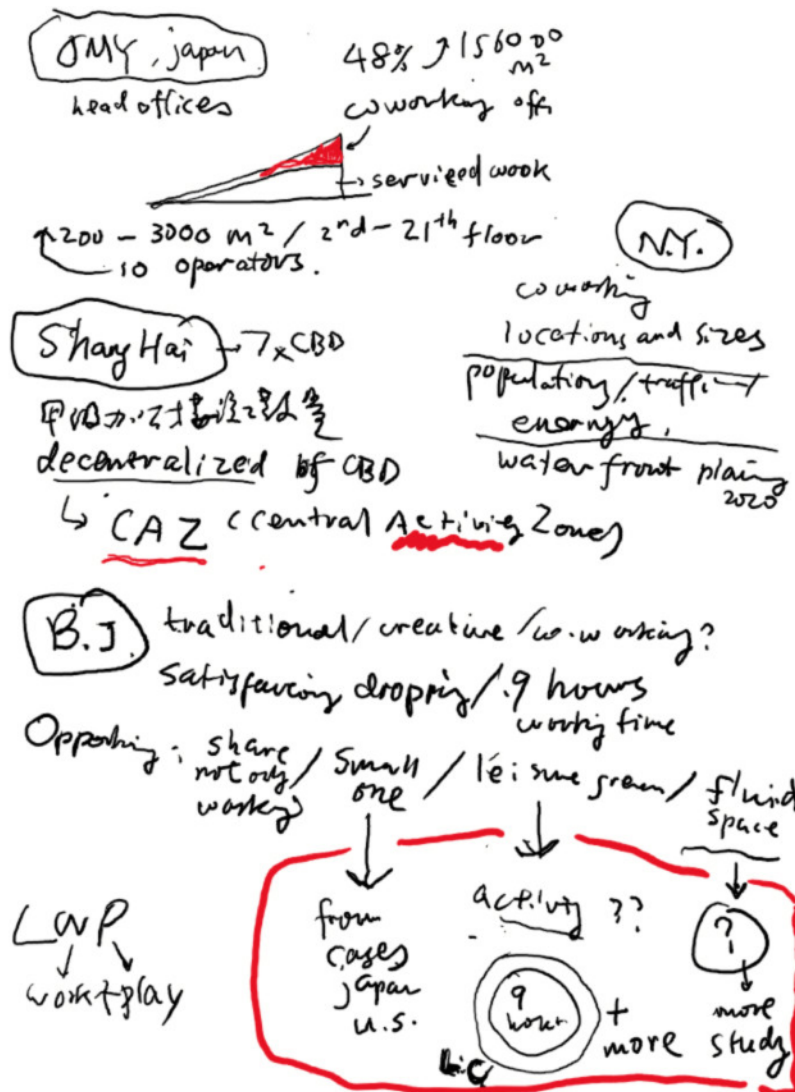 OMY, japan
head offices
48% ↗ 156000
m²
coworking offi
→ serviced wook
200 - 3000 m² / 2nd - 21th floor
10 operators.
N.Y.
coworking
locations and sizes
population / traffic
energy,
water front planing
2020
ShangHai → 7xCBD
decentralized of CBD
↳ CAZ (Central Activity Zones)
B.J. traditional / creative / co.working?
satisfacing dropping / 9 hours
working time
share
not only
working
/ small
one
/ leisure green /
fluid
space
from
cases
japan
U.S.
activity ??
9
hours
+
more
?
more
study
LWP
work + play